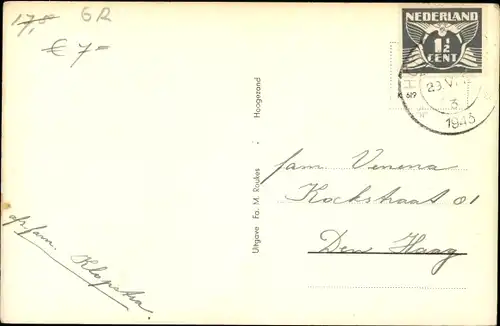 17,50 GR
€ 7=
NEDERLAND
1½
CENT
K 619
3
1943
Uitgave Fa. M. Roukes - Hoogezand
fam Venena
Kockstraat 81
Den Haag
afz. fam. Klopstra.